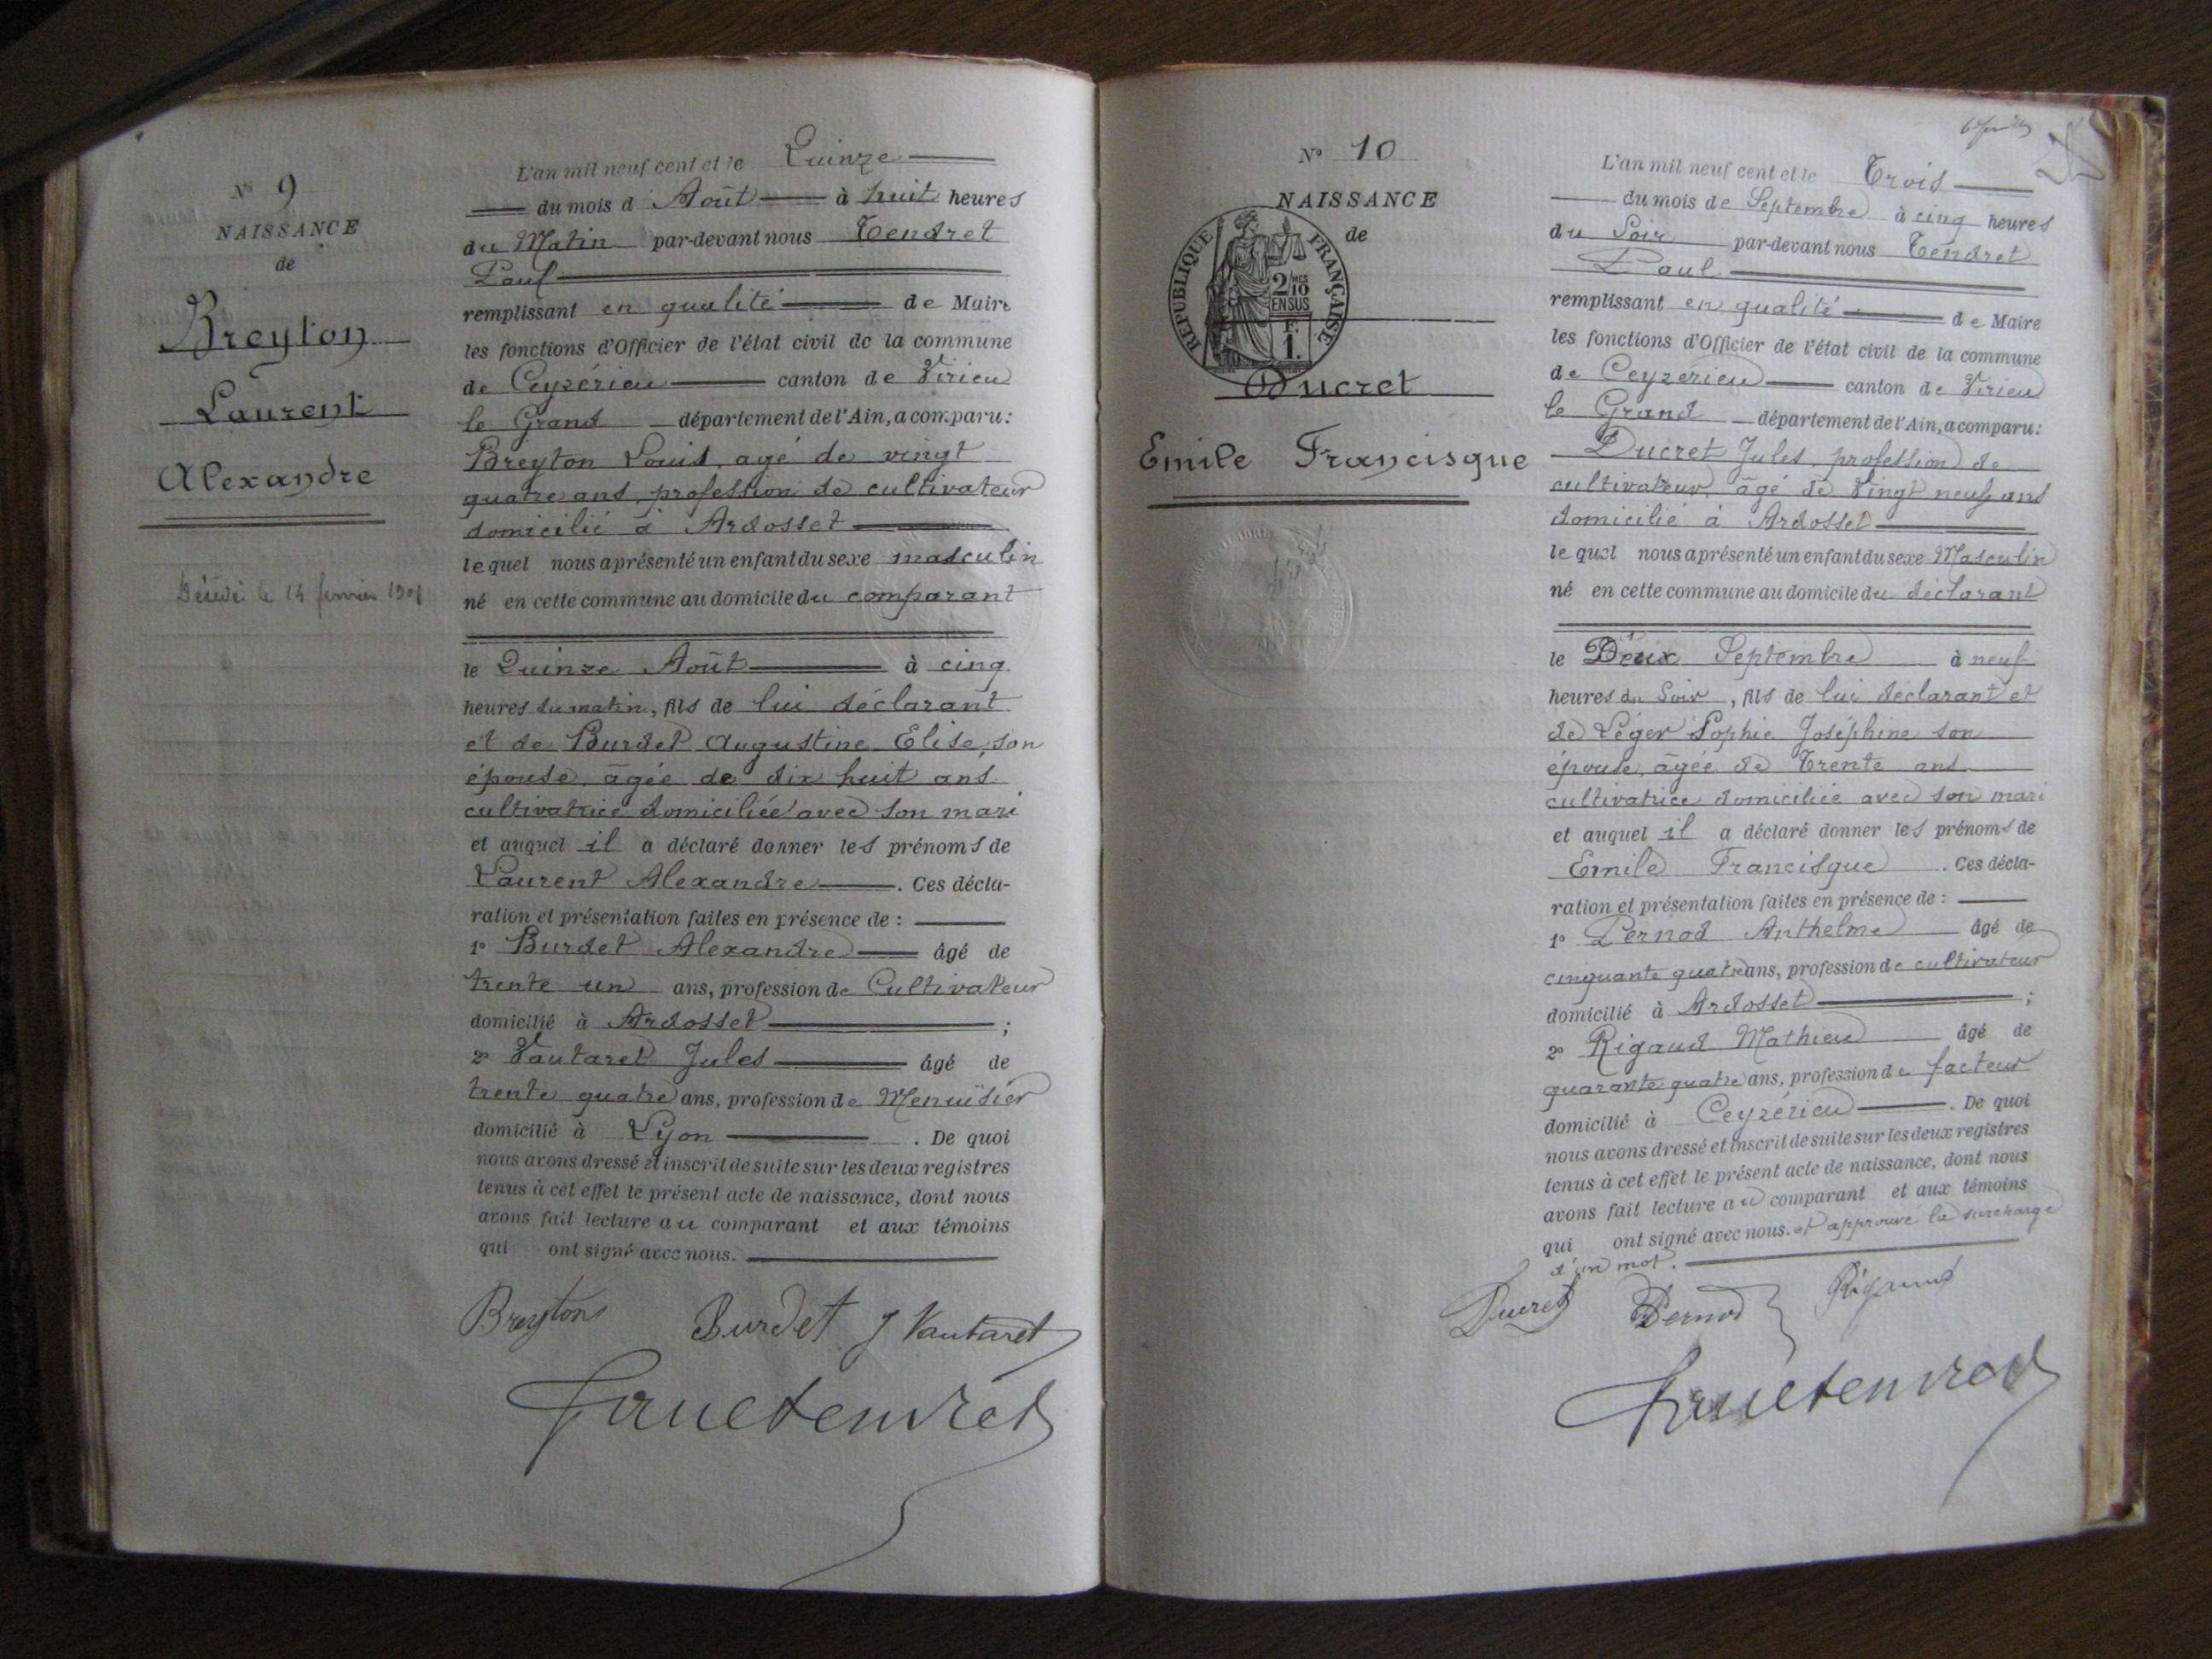 N° 9
NAISSANCE
de
Breyton
Laurent
Alexandre
Décédé le 14 février 1901
L'an mil neuf cent et le Quinze
du mois d Août à huit heures
du Matin par-devant nous Tendret
Paul
remplissant en qualité de Maire
les fonctions d'Officier de l'état civil de la commune
de Ceyzérieu canton de Virieu
le Grand département de l'Ain, a comparu:
Breyton Louis, agé de vingt
quatre ans, profession de cultivateur
domicilié à Ardosset
lequel nous a présenté un enfant du sexe masculin
né en cette commune au domicile du comparant
le Quinze Août à cinq
heures du matin, fils de lui déclarant
et de Burdet Augustine Elise, son
épouse, âgée de dix huit ans
cultivatrice domiciliée avec son mari
et auquel il a déclaré donner les prénoms de
Laurent Alexandre. Ces décla-
ration et présentation faites en présence de :
1° Burdet Alexandre âgé de
trente un ans, profession de Cultivateur
domicilié à Ardosset ;
2° Vautaret Jules âgé de
trente quatre ans, profession de Menuisier
domicilié à Lyon. De quoi
nous avons dressé et inscrit de suite sur les deux registres
tenus à cet effet le présent acte de naissance, dont nous
avons fait lecture au comparant et aux témoins
qui ont signé avec nous.
Breyton Burdet J Vautaret
N° 10
NAISSANCE
de
RÉPUBLIQUE FRANÇAISE
2/10MES
EN SUS
F.
1.
Ducret
Emile Francisque
L'an mil neuf cent et le Trois
du mois de Septembre à cinq heures
du Soir par-devant nous Tendret
Paul
remplissant en qualité de Maire
les fonctions d'Officier de l'état civil de la commune
de Ceyzérieu canton de Virieu
le Grand département de l'Ain, a comparu:
Ducret Jules profession de
cultivateur, âgé de Vingt neuf ans
domicilié à Ardosset
lequel nous a présenté un enfant du sexe Masculin
né en cette commune au domicile du déclarant
le Deux Septembre à neuf
heures du Soir, fils de lui déclarant et
de Léger Sophie Joséphine son
épouse, âgée de Trente ans
cultivatrice domiciliée avec son mari
et auquel il a déclaré donner les prénoms de
Emile Francisque. Ces décla-
ration et présentation faites en présence de :
1° Pernod Anthelme âgé de
cinquante quatre ans, profession de cultivateur
domicilié à Ardosset ;
2° Rigaud Mathieu âgé de
quarante quatre ans, profession de facteur
domicilié à Ceyzérieu. De quoi
nous avons dressé et inscrit de suite sur les deux registres
tenus à cet effet le présent acte de naissance, dont nous
avons fait lecture au comparant et aux témoins
qui ont signé avec nous. et approuvé la surcharge
d'un mot.
Ducret Pernod Rigaud